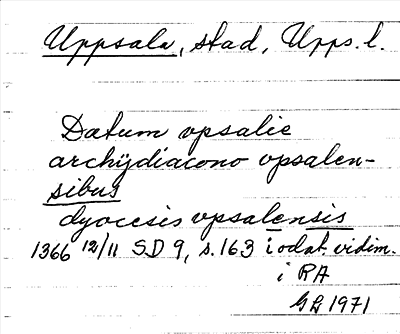 Uppsala, stad, Upps. l.
Datum vpsalie
archydiacono vpsalen-
sibus
dyocesis vpsalensis
1366 12/11 SD 9, s. 163 i odat. vidim.
i RA
GL 1971